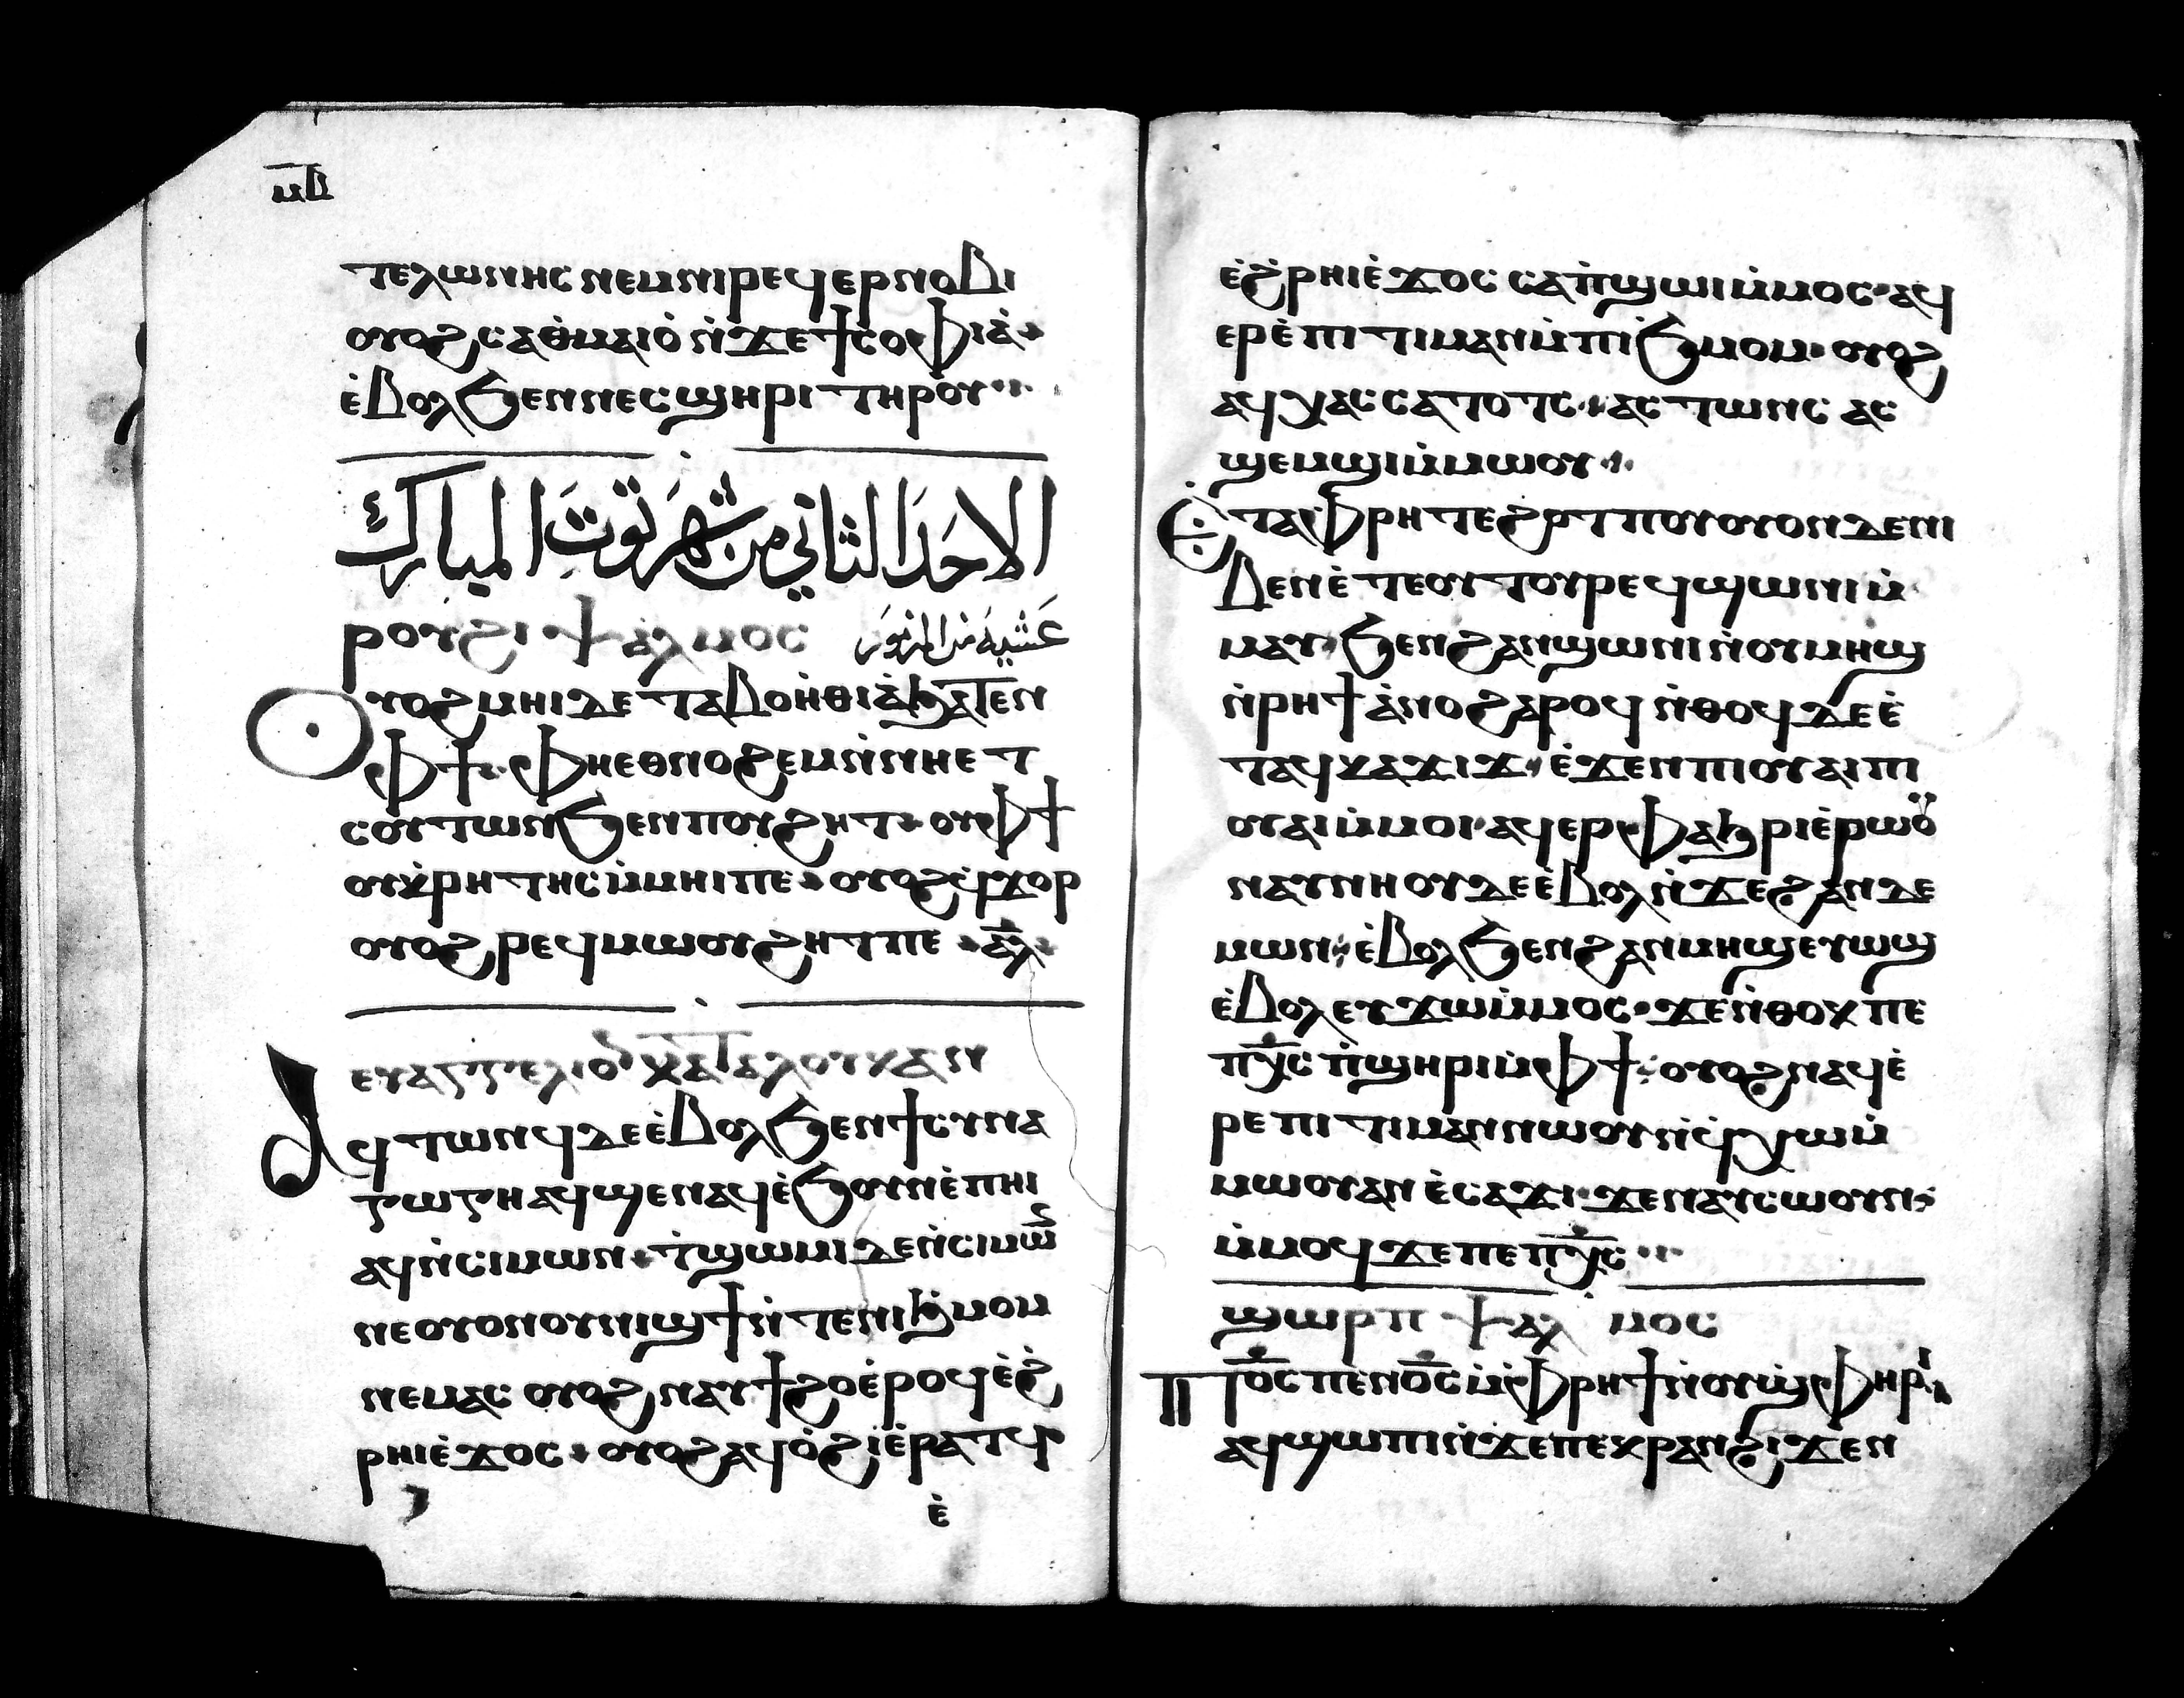 ⲙⲃ̅
ⲧⲉⲗⲱⲛⲏⲥ ⲛⲉⲙ ⲛⲓⲣⲉϥⲉⲣⲛⲟⲃⲓ
ⲟⲩⲟϩ ⲥⲁⲑⲙⲁⲓⲟ̀ ⲛ̀ϫⲉ ϯⲥⲟⲫⲓⲁ̀
ⲉ̀ⲃⲟⲗ ϧⲉⲛ ⲛⲉⲥϣⲏⲣⲓ ⲧⲏⲣⲟⲩ
الاحد الثاني من شهر توت المبارك
ⲣⲟⲩϩⲓ ⲯⲁⲗⲙⲟⲥ عشية من المزمور
ⲟⲩⲟϩ ⲙⲏⲓ ⲇⲉ ⲧⲁⲃⲟⲏ̀ⲑⲓⲁ̀ ϩⲁⲧⲉⲛ
ⲫϯ ⲫⲏⲉⲑⲛⲟϩⲉⲙ ⲛ̀ⲛⲏⲉⲧ
ⲥⲟⲩⲧⲱⲛ ϧⲉⲛ ⲡⲟⲩϩⲏⲧ ⲟⲩⲫϯ
ⲟⲩⲭ̀ⲣⲏⲧⲏⲥ ⲙ̀ⲙⲏⲓ ⲡⲉ ⲟⲩⲟϩ ϥ̀ϫⲟⲣ
ⲟⲩⲟϩ ⲣⲉϥⲙⲱⲟⲩϩⲏⲧ ⲡⲉ ⲁ̅ⲗ̅
ⲉⲩⲁⲅⲅⲉⲗⲓⲟ ⲕⲁⲧⲁ ⲗⲟⲩⲕⲁⲛ
ⲁϥⲧⲱⲛϥ ⲇⲉ ⲉ̀ⲃⲟⲗ ϧⲉⲛ ϯⲥⲩⲛⲁ
ⲅⲱⲅⲏ ⲁϥϣⲉⲛⲁϥ ⲉ̀ϧⲟⲩⲛ ⲉ̀ⲡⲏⲓ
ⲁϥⲛ̀ⲥⲓⲙⲱⲛ ⲧ̀ϣⲱⲙⲓ ⲇⲉ ⲛ̀ⲥⲓⲙⲱ̅
ⲛⲉ ⲟⲩⲟⲛ ⲟⲩⲛⲓϣϯ ⲛ̀ⲧⲉ ⲛⲓϧ̀ⲙⲟⲙ
ⲛⲉⲙⲁⲥ ⲟⲩⲟϩ ⲛⲁⲩϯϩⲟ ⲉ̀ⲣⲟϥ ⲉ̀ϩ̀
ⲣⲏⲓ ⲉ̀ϫⲟⲥ ⲟⲩⲟϩ ⲁϥⲟ̀ϩⲓ ⲉ̀ⲣⲁⲧϥ
ⲉ̀
ⲉ̀ϩ̀ⲣⲏⲓ ⲉ̀ϫⲟⲥ ⲥⲁⲡ̀ϣⲱⲓ ⲙ̀ⲙⲟⲥ ⲁϥ
ⲉⲣⲉ̀ⲡⲓⲧⲓⲙⲁⲛ ⲙ̀ⲡⲓϧ̀ⲙⲟⲙ ⲟⲩⲟϩ
ⲁϥⲭⲁⲥ ⲥⲁⲧⲟⲧⲥ ⲁⲥⲧⲱⲛⲥ ⲁⲥ
ϣⲉⲙϣⲓ ⲙ̀ⲙⲱⲟⲩ
ⲉ̀ⲧⲁ ⲫⲣⲏ ⲧⲉ ϩⲱⲧⲡ ⲟⲩⲟⲩⲟⲛ ⲇⲉ ⲛⲓ
ⲃⲉⲛ ⲉ̀ⲧⲉ ⲟⲩⲧⲟⲩ ⲣⲉϥϣⲱⲛⲓ ⲙ̀
ⲙⲁⲩ ϧⲉⲛ ϩⲁⲛϣⲱⲛⲓ ⲛ̀ⲟⲩⲙⲏϣ
ⲛ̀ⲣⲏϯ ⲁ̀ⲛⲟϩ ⲁⲣⲟϥ ⲛ̀ⲑⲟϥ ⲇⲉ ⲉ̀
ⲧⲁϥⲭⲁϫⲓϫ ⲉ̀ϫⲉⲛ ⲡⲓⲟⲩⲁⲓ ⲡⲓ
ⲟⲩⲁⲓ ⲙ̀ⲙⲟⲓ ⲁϥⲉⲣⲫⲁϧⲣⲓ ⲉ̀ⲣⲱⲟⲩ
ⲛⲁⲩⲛⲏⲟⲩ ⲇⲉ ⲉ̀ⲃⲟⲗ ⲛ̀ϫⲉ ϩⲁⲛⲇⲉ
ⲙⲱⲛ ⲉ̀ⲃⲟⲗ ϧⲉⲛ ϩⲁⲛⲙⲏϣ ⲉⲩⲱϣ
ⲉ̀ⲃⲟⲗ ⲉⲩϫⲱ ⲙ̀ⲙⲟⲥ ϫⲉ ⲛ̀ⲑⲟⲕ ⲡⲉ
ⲡⲭ̅ⲥ̅ ⲡ̀ϣⲏⲣⲓ ⲙ̀ⲫϯ ⲟⲩⲟϩ ⲛⲁϥⲉ̀
ⲣⲉⲡⲓⲧⲓⲙⲁⲛ ⲛⲱⲟⲩ ⲛ̀ϥ̀ⲭⲱ ⲙ̀
ⲙⲱⲟⲩ ⲁⲛ ⲉ̀ⲥⲁϫⲓ ϫⲉ ⲛⲁⲩⲥⲱⲟⲩⲛ
ⲙ̀ⲙⲟϥ ϫⲉ ⲡⲉ ⲡⲭ̅ⲥ̅
ϣⲱⲣⲡ ⲯⲁⲗⲙⲟⲥ
ⲡ̅ⲟ̅ⲥ̅ ⲡⲉⲛⲟ̅ⲥ̅ ⲙ̀ⲫⲣⲏϯ ⲛ̀ⲟⲩϣⲫⲏⲣⲓ
ⲁϥϣⲱⲡⲓ ⲛ̀ϫⲉ ⲡⲉⲕⲣⲁⲛ ϩⲓϫⲉⲛ